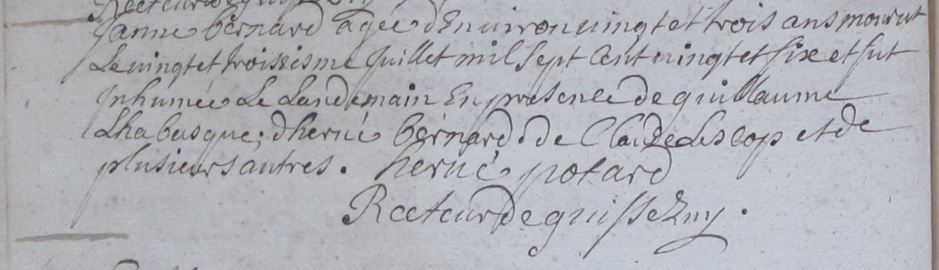 Recteur de guissezny
janne bernard agée dEnviron vingt et trois ans mourut
Le vingt et troissisme juillet mil sept Cent vingt et six et fut
jnhumée Le Landemain En presence de guillaume
Lhabasque, dhervé bernard, de Claude Lescop et de
plusieurs autres. hervé potard
Recteur de guissezny.